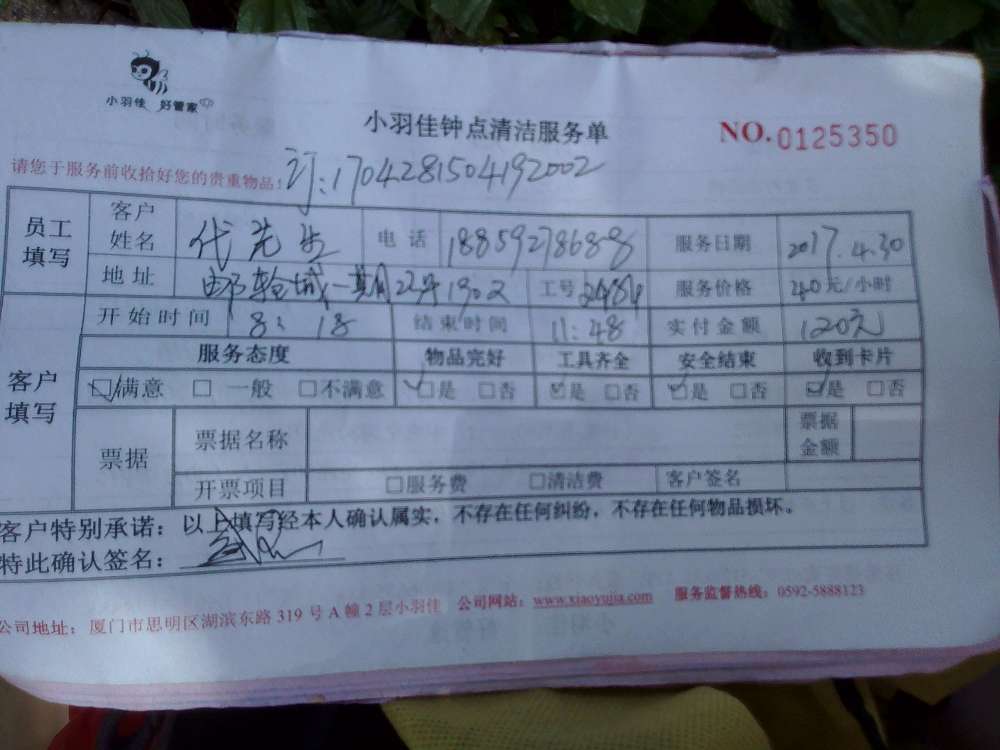 小羽佳 好管家
小羽佳钟点清洁服务单
NO.0125350
请您于服务前收拾好您的贵重物品!
订:1704281504192002
员工填写 客户姓名 代先生 电话 18859278688 服务日期 2017.4.30
地址 邮轮城一期 1302 工号 2484 服务价格 40元/小时
客户填写 开始时间 8:18 结束时间 11:48 实付金额 120元
服务态度 物品完好 工具齐全 安全结束 收到卡片
☑满意 □一般 □不满意 ☑是 □否 ☑是 □否 ☑是 □否 ☑是 □否
票据 票据名称 票据金额
开票项目 □服务费 □清洁费 客户签名
客户特别承诺:以上填写经本人确认属实,不存在任何纠纷,不存在任何物品损坏。
特此确认签名:
公司地址:厦门市思明区湖滨东路319号A幢2层小羽佳 公司网站:www.xiaoyujia.com 服务监督热线:0592-5888123